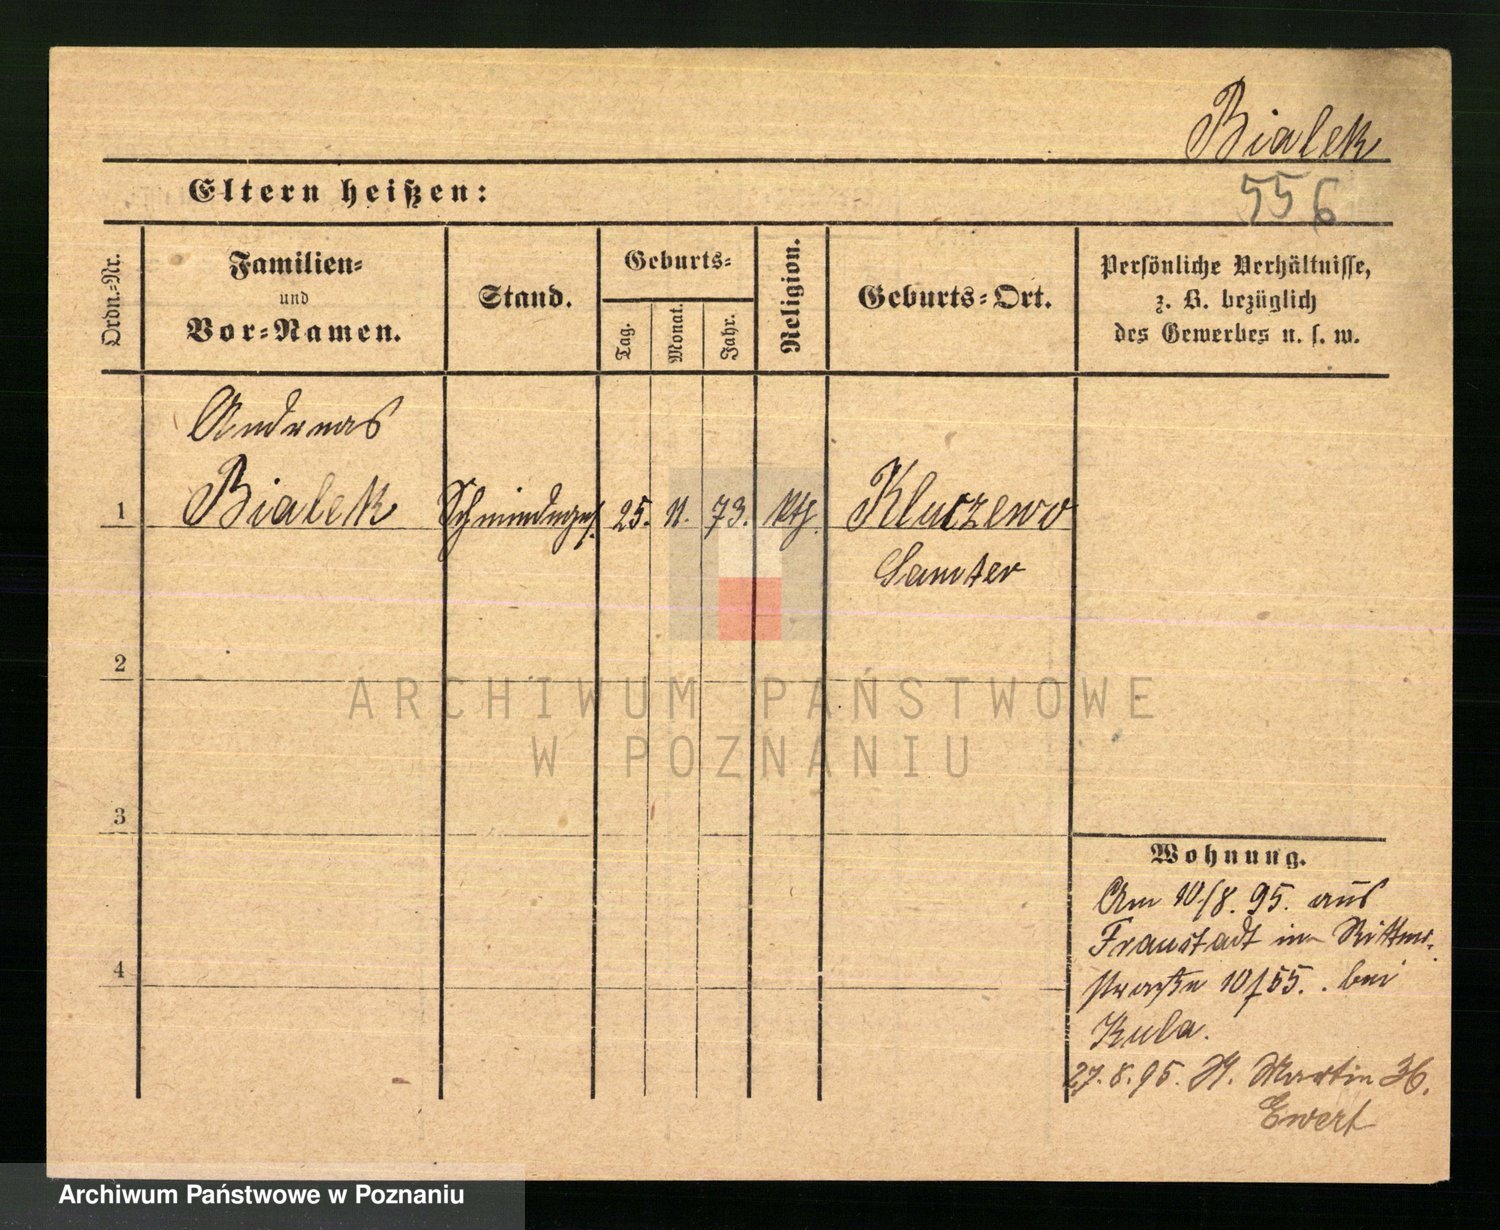 Bialek
Eltern heißen:
556
Ordn.-Nr.
Familien-
und
Vor-Namen.
Stand.
Geburts-
Tag.
Monat.
Jahr.
Religion.
Geburts-Ort.
Persönliche Verhältnisse,
z. B. bezüglich
des Gewerbes u. s. w.
Andreas
1 Bialek Schmiedeges. 25. 11. 73. kth. Kluczewo
Samter
2
3
4
Wohnung.
Am 10/8. 95. aus
Fraustadt in Ritter-
straße 10/55. bei
Kula.
27.8.95. St. Martin 36.
Ewert
ARCHIWUM PAŃSTWOWE
W POZNANIU
Archiwum Państwowe w Poznaniu